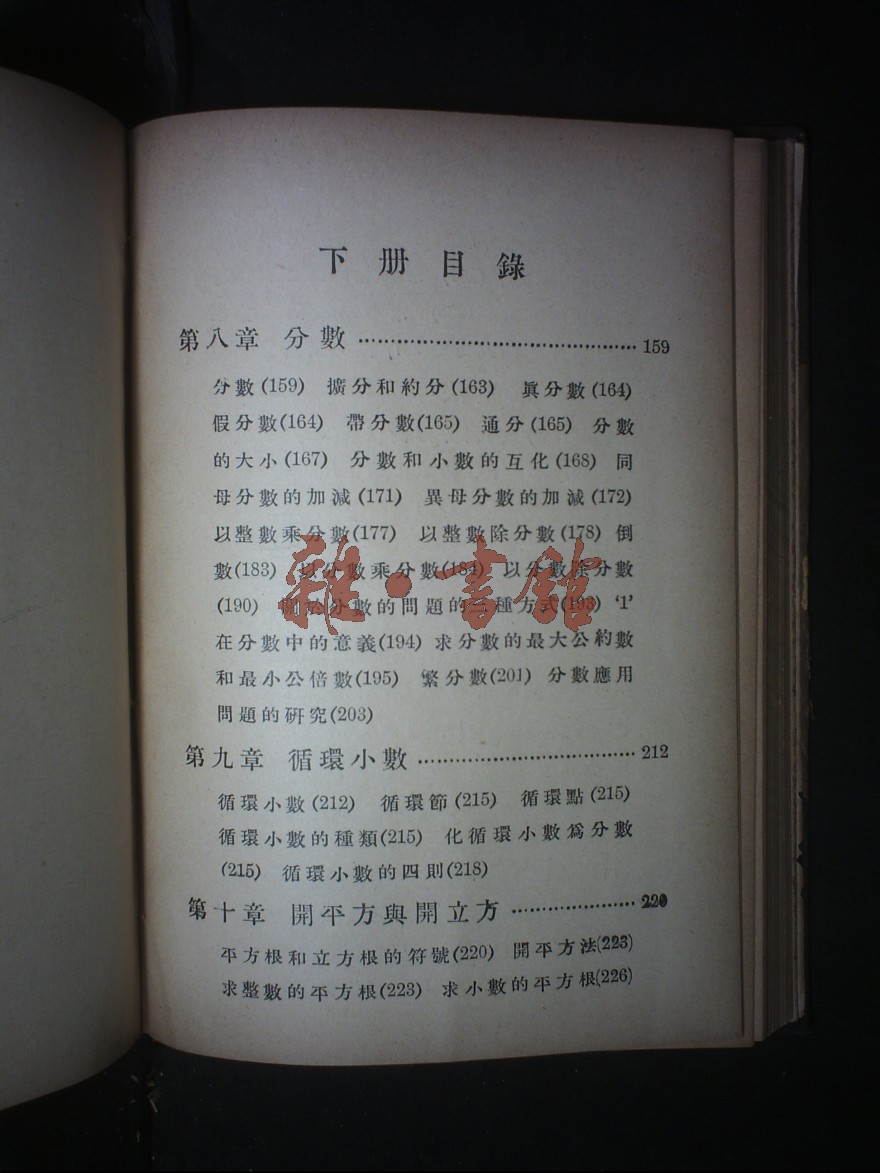 下册目錄
第八章 分數 ………………………………… 159
分數(159) 擴分和約分(163) 眞分數(164)
假分數(164) 帶分數(165) 通分(165) 分數
的大小(167) 分數和小數的互化(168) 同
母分數的加減(171) 異母分數的加減(172)
以整數乘分數(177) 以整數除分數(178) 倒
數(183) 以分數乘分數(184) 以分數除分數
(190) 關於分數的問題的三種方式(193) ‘1’
在分數中的意義(194) 求分數的最大公約數
和最小公倍數(195) 繁分數(201) 分數應用
問題的研究(203)
第九章 循環小數 ………………………… 212
循環小數(212) 循環節(215) 循環點(215)
循環小數的種類(215) 化循環小數爲分數
(215) 循環小數的四則(218)
第十章 開平方與開立方 ……………… 220
平方根和立方根的符號(220) 開平方法(223)
求整數的平方根(223) 求小數的平方根(226)
雜·書館